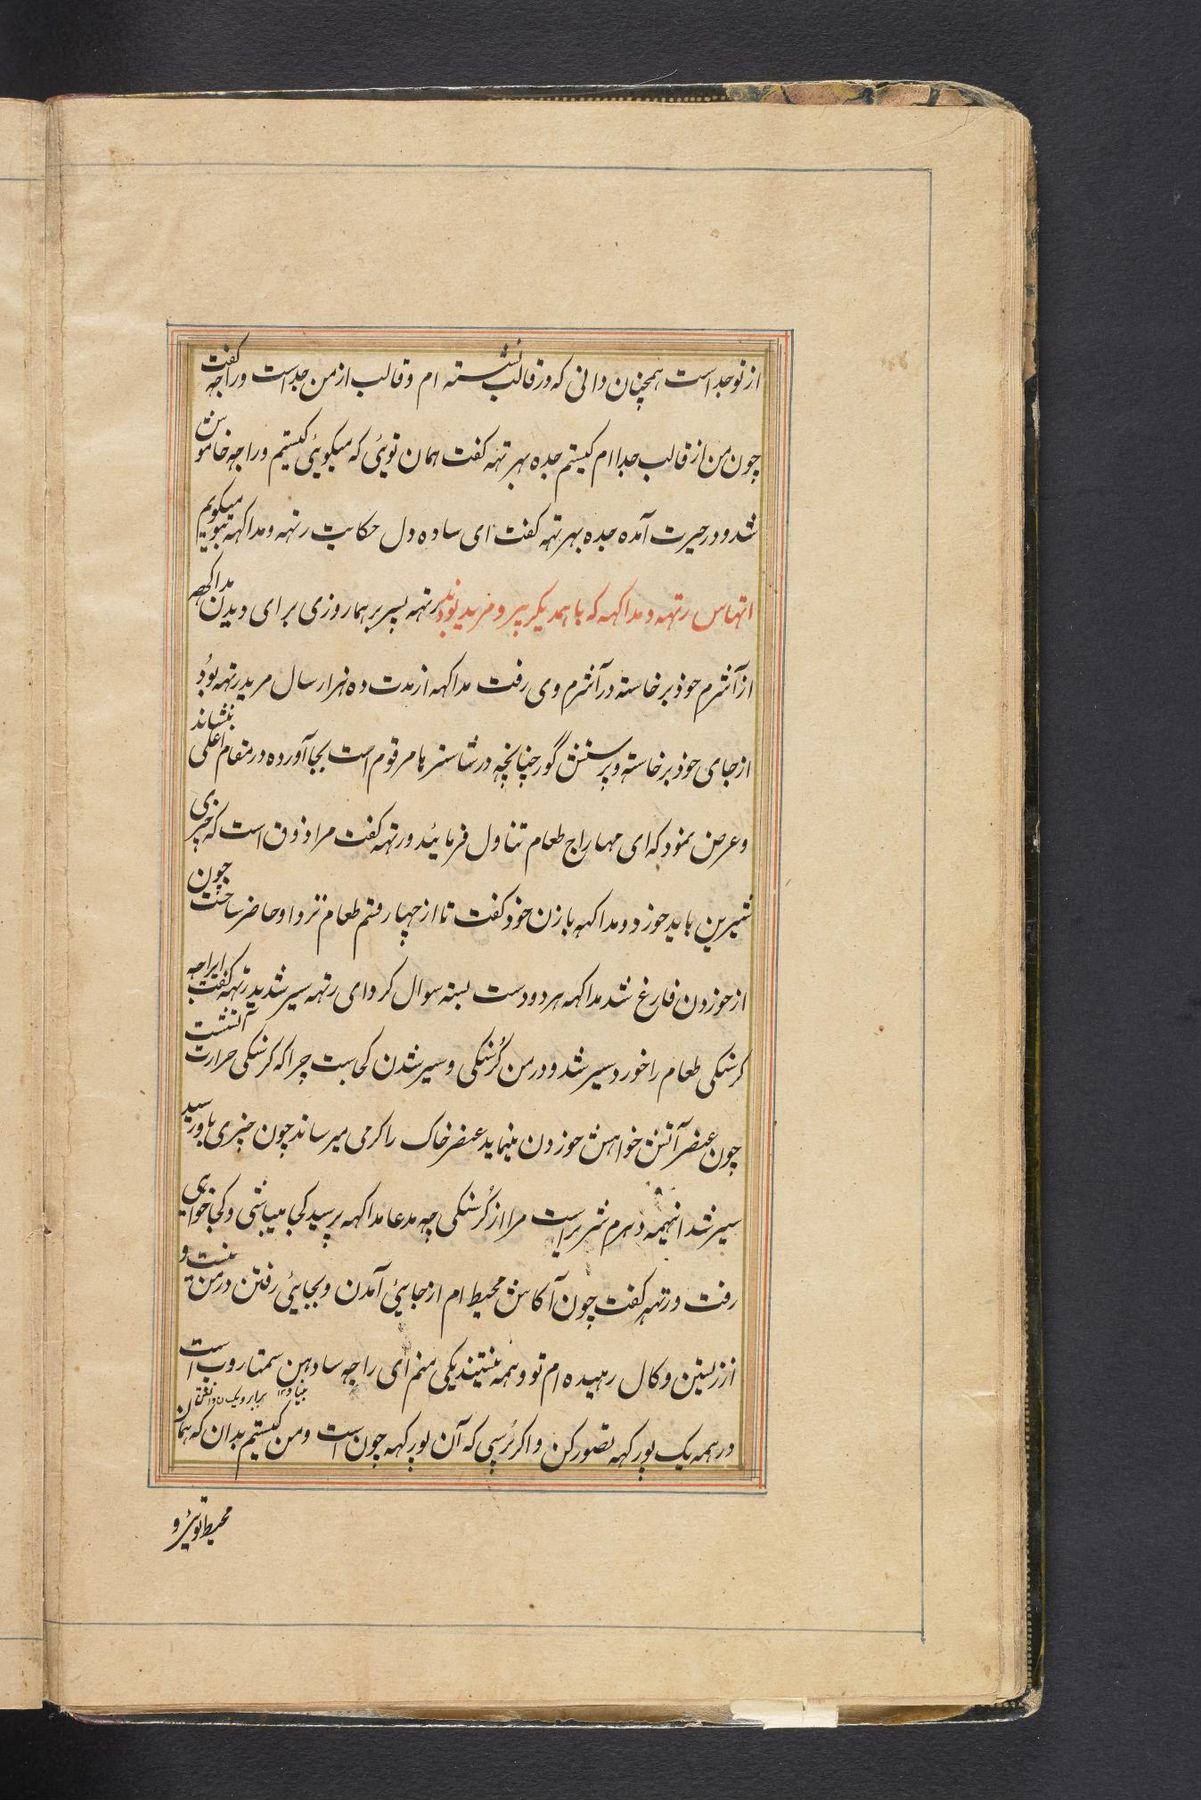 از تو جداست همچنان دانی که در قالب نشسته ام و قالب از من جداست و راجه گفت
چون من از قالب جدا ام کیستم جده بهرتهه گفت همان توئی که میکوئی کیستم و راجه خاموش
شد و در حیرت آمده جده بهرتهه گفت ای ساده دل حکایت رتهه و مداکهه بتو میکویم
اتهاس رتهه و مداکهه که با همدیکر پیر و مرید بودند رتهه پسر برهما روزی برای دیدن مداکهه
از آشرم خود برخاسته در آشرم وی رفت مداکهه از مدت ده هزار سال مرید رتهه بود
از جای خود برخاسته و پرستش گور چنانچه در شاسترها مرقوم است بجا آورده در مقام اعلی بنشاند
و عرض نمود که ای مهاراج طعام تناول فرمائید و رتهه گفت مرا ذوق است که چیزی
شیرین باید خورد و مداکهه با زن خود گفت تا از چهار قسم طعام نزد او حاضر ساخت چون
از خوردن فارغ شد مداکهه هر دو دست بسته سوال کرد ای رتهه سیر شدید رتهه گفت ایراجه
کرسنکی طعام را خورد سیر شد و در من کرسنکی و سیر شدن کجاست چرا که کرسنکی حرارت آتشست
چون عنصر آتش خواهش خوردن مینماید عنصر خاک را کرمی میرساند چون چیزی باو رسید
سیر شد اینهمه دهرم شریر است مرا از کرسنکی چه مدعا مداکهه پرسید کجا میباشی و کجا خواهی
رفت و رتهه گفت چون آکاش محیط ام از جائی آمدن و بجائی رفتن در من نیست و
از زیستن و کال رهیده ام تو و همه نیستند یکی منم ای راجه سادهن سمتا روپ است
در همه یک پورکهه تصور کن و اکر پرسی که آن پورکهه چون است و من کیستم بدان که همان
محیط توئی و